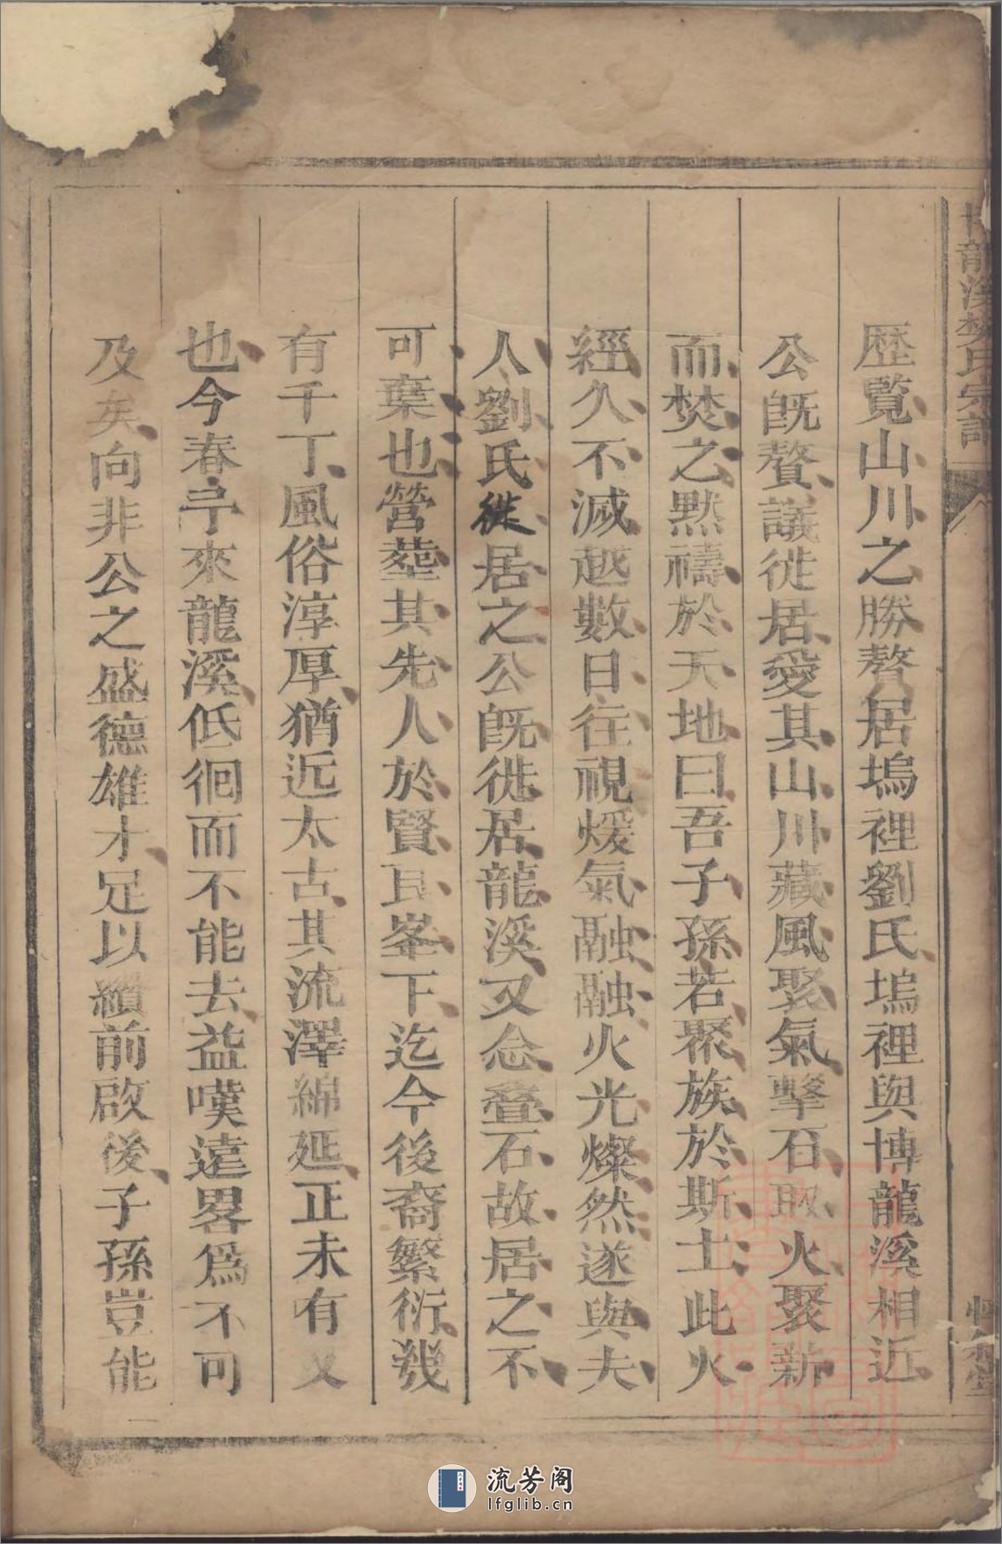 龍溪樊氏宗譜
歷覽山川之勝贅居塢裡劉氏塢裡與博龍溪相近
公旣贅議徙居愛其山川藏風聚氣擊石取火聚薪
而焚之黙禱於天地曰吾子孫若聚族於斯土此火
經久不滅越數日往視煖氣融融火光燦然遂與夫
人劉氏徙居之公旣徙居龍溪又念叠石故居之不
可棄也營塟其先人於賢良峯下迄今後裔繁衍幾
有千丁風俗淳厚猶近太古其流澤綿延正未有艾
也今春予來龍溪低徊而不能去益嘆遠畧爲不可
及矣向非公之盛德雄才足以纘前啟後子孫豈能
流芳阁
lfglib.cn